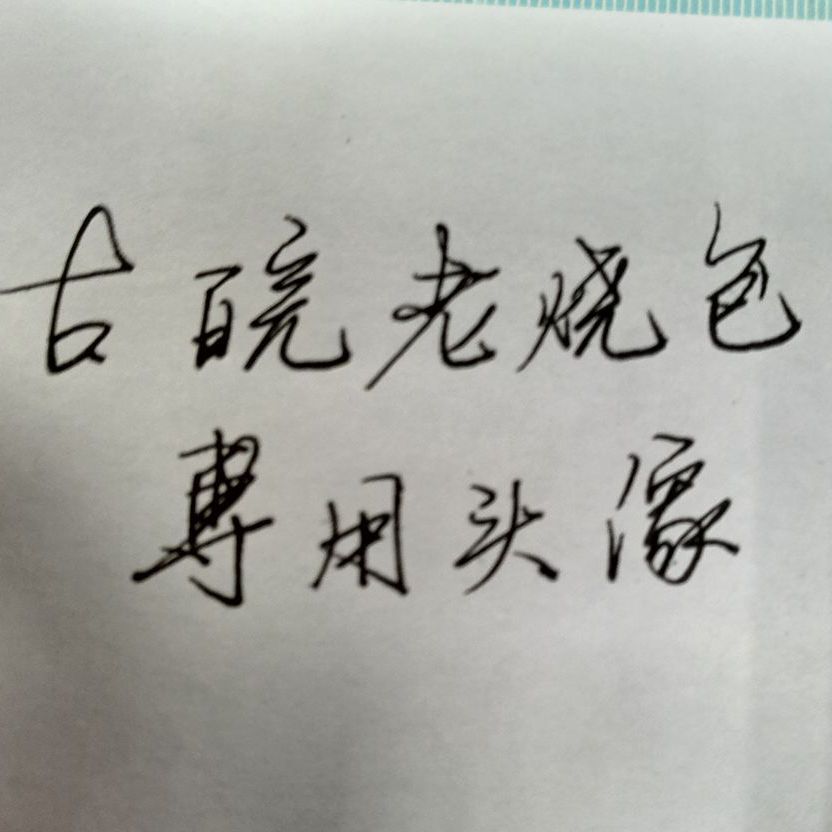 古皖老烧包
專用头像